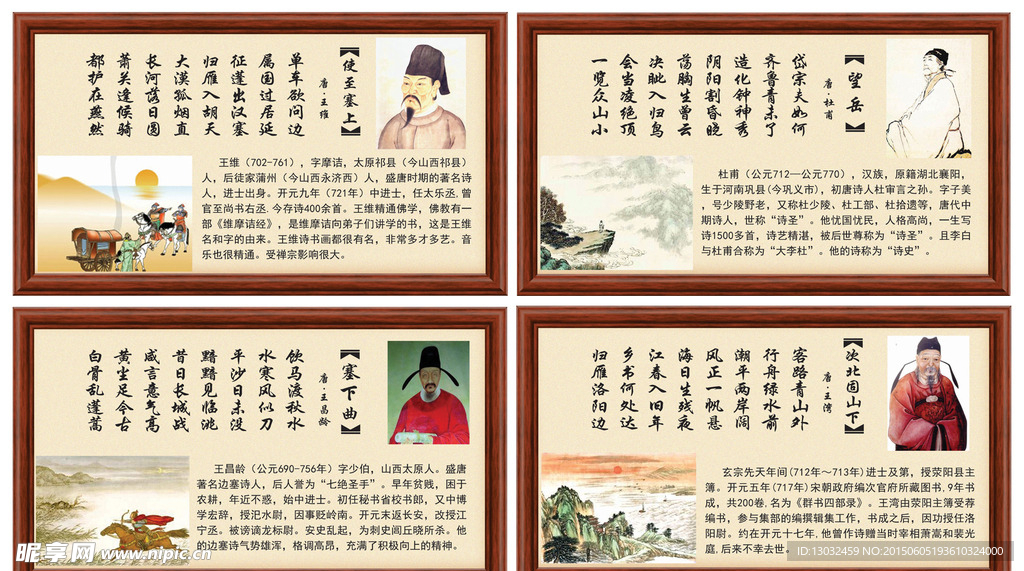 《使至塞上》
唐·王维
单车欲问边
属国过居延
征蓬出汉塞
归雁入胡天
大漠孤烟直
长河落日圆
萧关逢候骑
都护在燕然
王维（702-761），字摩诘，太原祁县（今山西祁县）
人，后徒家蒲州（今山西永济西）人，盛唐时期的著名诗
人，进士出身。开元九年（721年）中进士，任太乐丞.曾
官至尚书右丞.今存诗400余首。王维精通佛学，佛教有一
部《维摩诘经》，是维摩诘向弟子们讲学的书，这是王维
名和字的由来。王维诗书画都很有名，非常多才多艺。音
乐也很精通。受禅宗影响很大。
《望岳》
唐·杜甫
岱宗夫如何
齐鲁青未了
造化钟神秀
阴阳割昏晓
荡胸生曾云
决眦入归鸟
会当凌绝顶
一览众山小
杜甫（公元712—公元770），汉族，原籍湖北襄阳，
生于河南巩县(今巩义市)，初唐诗人杜审言之孙。字子美
，号少陵野老，又称杜少陵、杜工部、杜拾遗等，唐代中
期诗人，世称“诗圣”。他忧国忧民，人格高尚，一生写
诗1500多首，诗艺精湛，被后世尊称为“诗圣”。且李白
与杜甫合称为“大李杜”。他的诗称为“诗史”。
《塞下曲》
唐·王昌龄
饮马渡秋水
水寒风似刀
平沙日未没
黯黯见临洮
昔日长城战
咸言意气高
黄尘足今古
白骨乱蓬蒿
王昌龄（公元690-756年）字少伯，山西太原人。盛唐
著名边塞诗人，后人誉为“七绝圣手”。早年贫贱，困于
农耕，年近不惑，始中进士。初任秘书省校书郎，又中博
学宏辞，授汜水尉，因事贬岭南。开元末返长安，改授江
宁丞。被谤谪龙标尉。安史乱起，为刺史闾丘晓所杀。他
的边塞诗气势雄浑，格调高昂，充满了积极向上的精神。
《次北固山下》
唐·王湾
客路青山外
行舟绿水前
潮平两岸阔
风正一帆悬
海日生残夜
江春入旧年
乡书何处达
归雁洛阳边
玄宗先天年间(712年～713年)进士及第，授荥阳县主
簿。开元五年(717年)宋朝政府编次官府所藏图书.9年书
成，共200卷.名为《群书四部录》。王湾由荥阳主簿受荐
编书，参与集部的编撰辑集工作，书成之后，因功授任洛
阳尉。约在开元十七年，他曾作诗赠当时宰相萧嵩和裴光
庭.后来不幸去世。
昵享网 www.nipic.cn
ID:13032459 NO:20150605193610324000